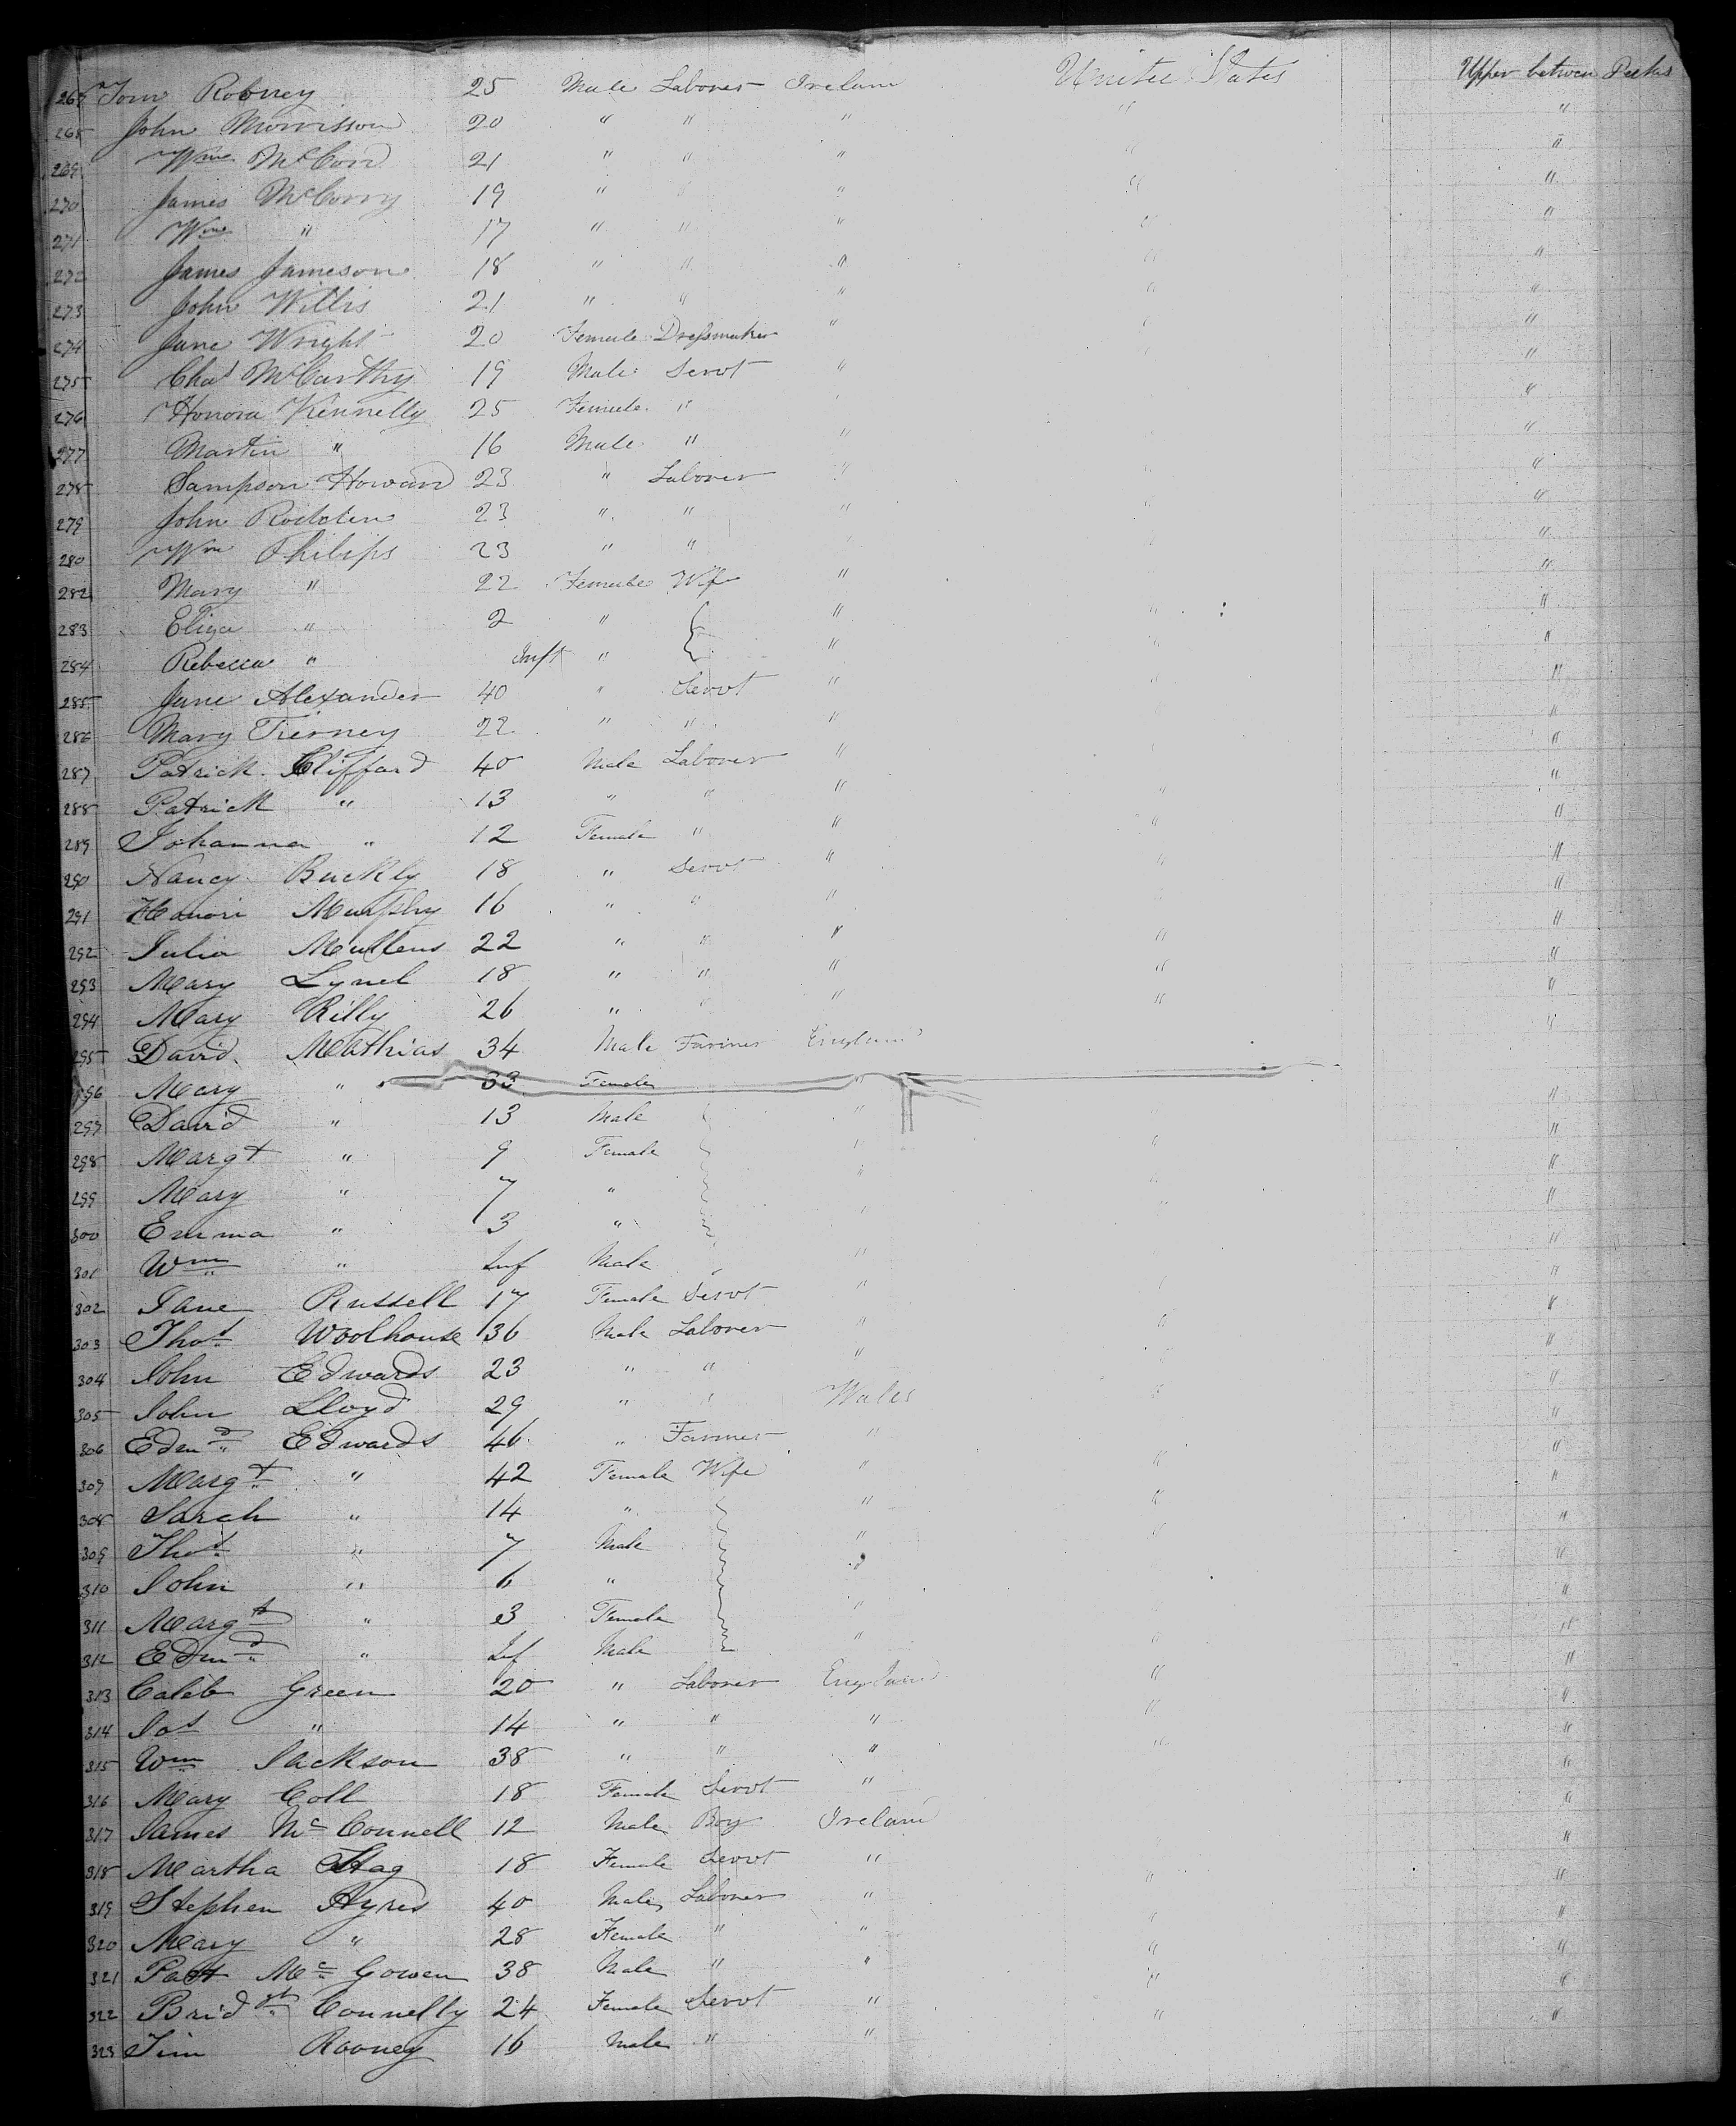 267 Tom Rooney 25 Male Laborer Ireland United States Upper between Decks
268 John Morrisson 20 " " " " "
269 Wm McCord 21 " " " " "
270 James McCorry 19 " " " " "
271 Wm " 17 " " " " "
272 James Jameson 18 " " " " "
273 John Willis 21 " " " " "
274 Jane Wright 20 Female Dressmaker " " "
275 Chas McCarthy 19 Male Servt " "
276 Honora Kennelly 25 Female " " "
277 Martin " 16 Male " " "
278 Sampson Howard 23 " Laborer " " "
279 John 23 " " " " "
280 Wm Philips 23 " " " " "
282 Mary " 22 Female Wife " "
283 Eliza " 2 " " " "
284 Rebecca " Inft " " " "
285 Jane Alexander 40 " Servt " " "
286 Mary Tierney 22 " " " "
287 Patrick Clifford 40 Male Laborer " "
288 Patrick " 13 " " " " "
289 Johanna " 12 Female " " " "
290 Nancy Buckly 18 " Servt " " "
291 Honori Murphy 16 " " " " "
292 Julia Mullens 22 " " " " "
293 Mary Lynch 18 " " " " "
294 Mary Rilly 26 " " " " "
295 David Mathias 34 Male Farmer England "
296 Mary " 33 Female "
297 David " 13 Male " "
298 Margt " 9 Female " " "
299 Mary " 7 " " " "
300 Emma " 3 " " " "
301 Wm " Inf Male " "
302 Jane Russell 17 Female Servt " " "
303 Thos Woolhouse 36 Male Laborer " " "
304 John Edwards 23 " " " " "
305 John Lloyd 29 " " Wales " "
306 Edmd Edwards 46 " Farmer " "
307 Margt " 42 Female Wife " " "
308 Sarah " 14 " " " "
309 Thos " 7 Male " " "
310 John " 6 " " "
311 Margt " 3 Female " " "
312 Edmd " Inf Male " " "
313 Caleb Green 20 " Laborer England " "
314 Jos " 14 " " " " "
315 Wm Jackson 38 " " " " "
316 Mary Coll 18 Female Servt " "
317 James McConnell 12 Male Boy Ireland "
318 Martha Stag 18 Female Servt " "
319 Stephen Ayres 40 Male Laborer " " "
320 Mary " 28 Female " " " "
321 Patt McGowen 38 Male " " " "
322 Bridgt Connelly 24 Female Servt " " "
323 Tim Rooney 16 Male " " " "